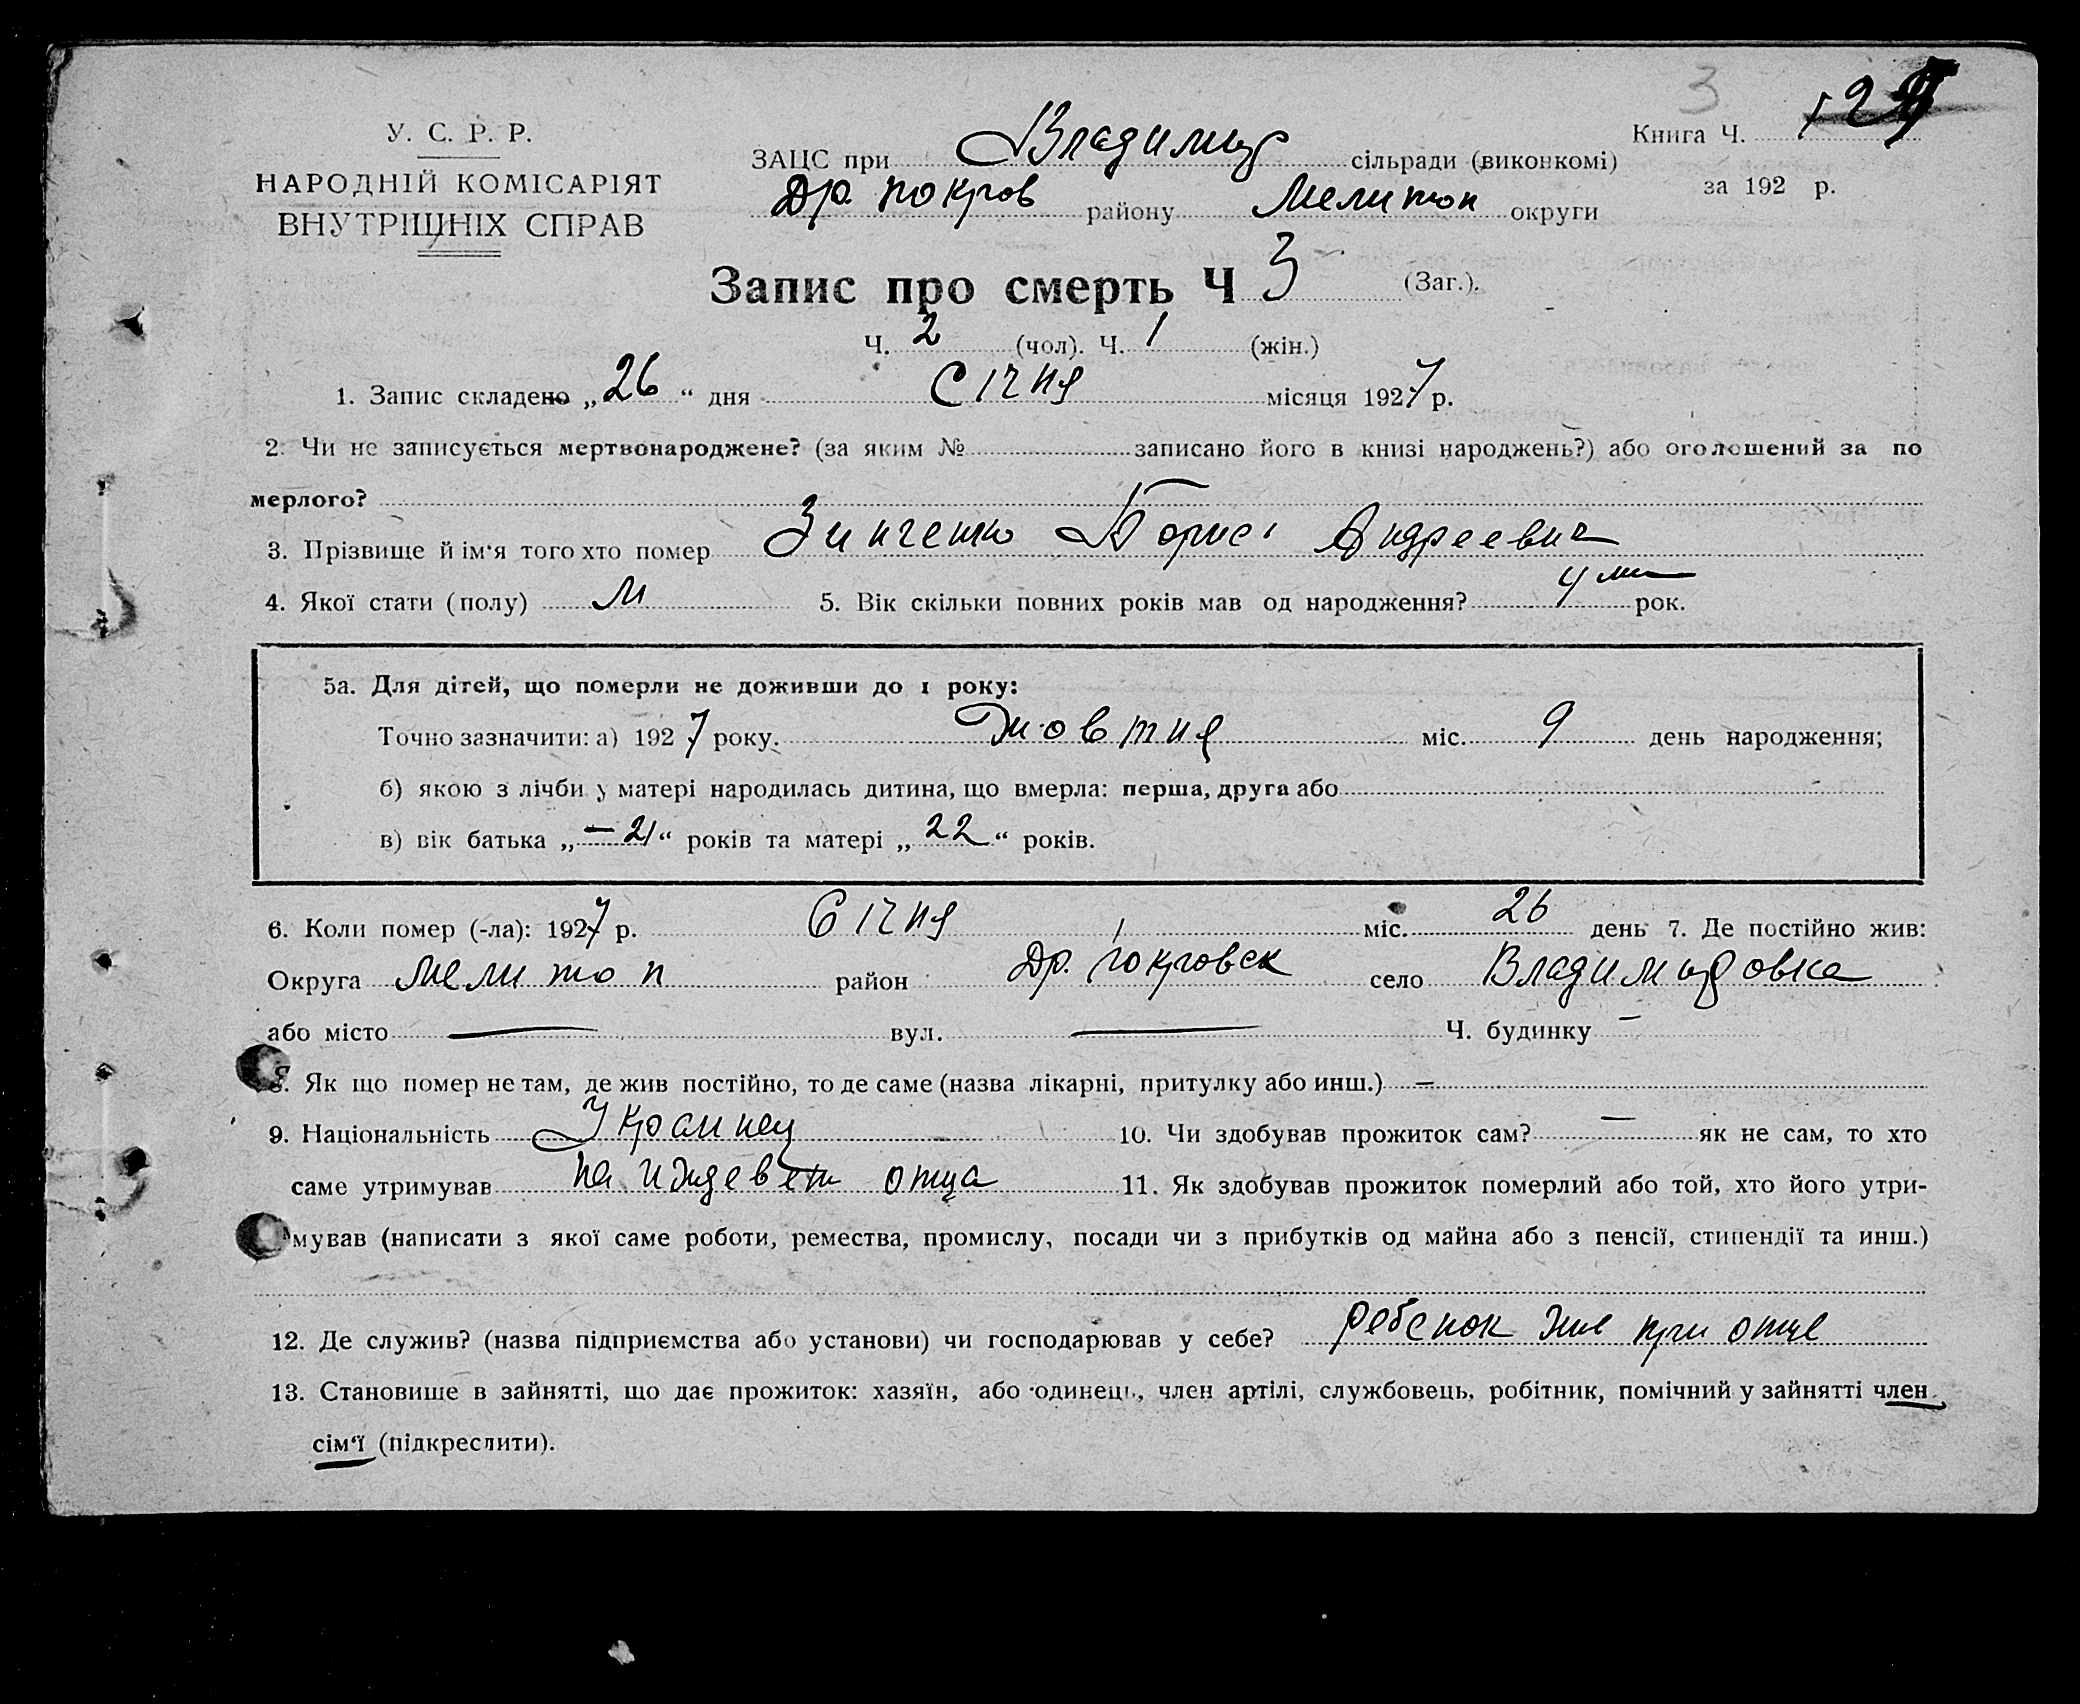 3
У. С. Р. Р.
НАРОДНІЙ КОМІСАРІЯТ
ВНУТРІШНІХ СПРАВ
Книга Ч.
ЗАЦС при Владимир сільради (виконкомі)
за 192 р.
Др. покров району Мелитоп округи
Запис про смерть Ч 3 (Заг.).
Ч. 2 (чол). Ч. 1 (жін.)
1. Запис складено „26“ дня Січня місяця 1927 р.
2. Чи не записується мертвонароджене? (за яким № записано його в книзі народжень?) або оголошений за по
мерлого?
3. Прізвище й ім‘я того хто помер Зинченко Борис Андреевич
4. Якої стати (полу) М 5. Вік скільки повних років мав од народження? 4 ме рок.
5а. Для дітей, що померли не доживши до 1 року:
Точно зазначити: а) 1927 року. Жовтня міс. 9 день народження;
б) якою з лічби у матері народилась дитина, що вмерла: перша, друга або
в) вік батька „— 21“ років та матері „22“ років.
6. Коли помер (-ла): 1927 р. Січня міс. 26 день 7. Де постійно жив:
Округа Мелитоп район Др. покровск село Владимировка
або місто — вул. — Ч. будинку —
8. Як що помер не там, де жив постійно, то де саме (назва лікарні, притулку або инш.) —
9. Національність Украинец 10. Чи здобував прожиток сам? — як не сам, то хто
саме утримував на иждевен отца 11. Як здобував прожиток померлий або той, хто його утри-
мував (написати з якої саме роботи, ремества, промислу, посади чи з прибутків од майна або з пенсії, стипендії та инш.)
12. Де служив? (назва підприємства або установи) чи господарював у себе? ребенок жив при отце
13. Становище в зайнятті, що дає прожиток: хазяїн, або одинець, член артілі, службовець, робітник, помічний у зайнятті член
сім‘ї (підкреслити).